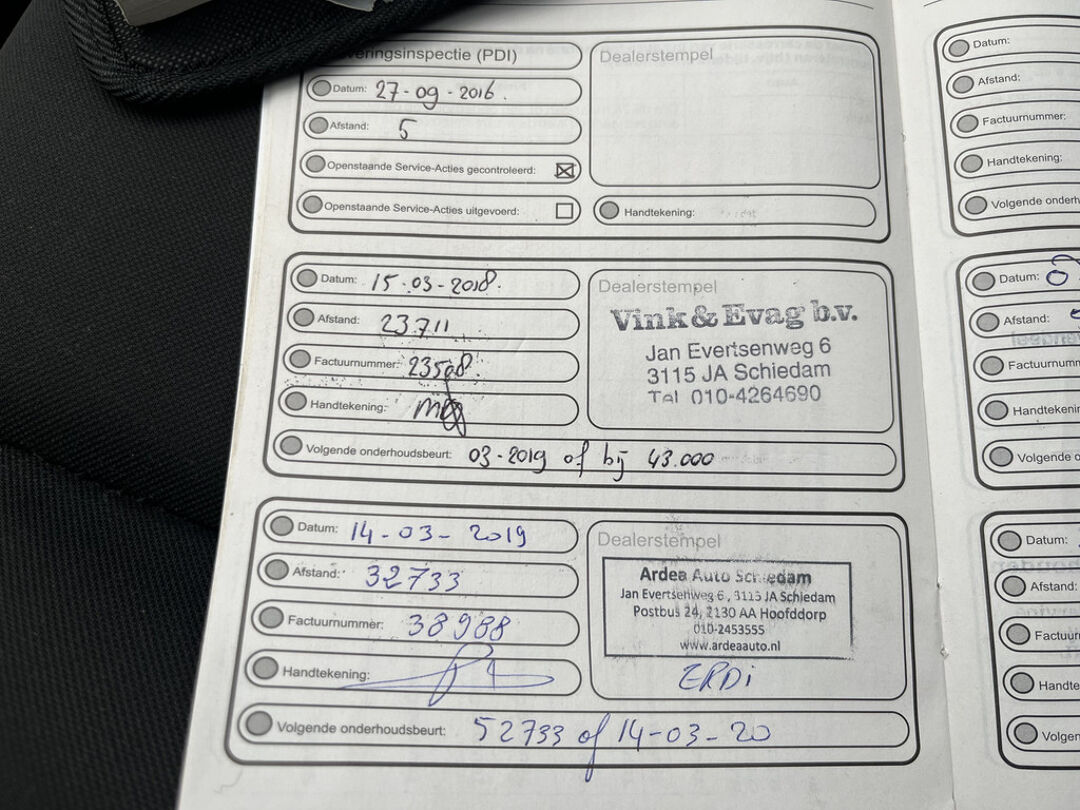 veringsinspectie (PDI)
Datum: 27-09-2016.
Afstand: 5
Openstaande Service-Acties gecontroleerd:
Openstaande Service-Acties uitgevoerd:
Dealerstempel
Handtekening:
Datum: 15-03-2018.
Afstand: 23711
Factuurnummer: 23508
Handtekening:
Volgende onderhoudsbeurt: 03-2019 of bij 43.000
Dealerstempel
Vink & Evag b.v.
Jan Evertsenweg 6
3115 JA Schiedam
Tel 010-4264690
Datum: 14-03-2019
Afstand: 32733
Factuurnummer: 38988
Handtekening:
Volgende onderhoudsbeurt: 52733 of 14-03-20
Dealerstempel
Ardea Auto Schiedam
Jan Evertsenweg 6, 3115 JA Schiedam
Postbus 24, 2130 AA Hoofddorp
010-2453555
www.ardeaauto.nl
ERDi
Datum:
Afstand:
Factuurnummer:
Handtekening:
Volgende onderh
Datum:
Afstand:
Factuurnumm
Handtekenin
Volgende o
Datum:
Afstand:
Factuur
Handte
Volgen